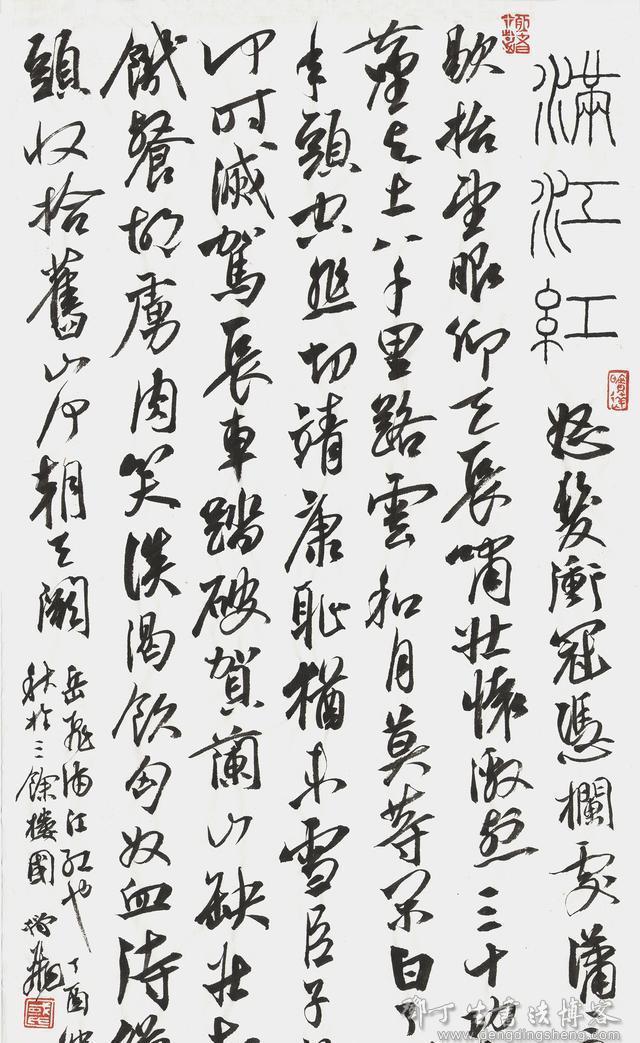 滿江紅
怒髮衝冠憑欄處瀟
歇抬望眼仰天長嘯壯懷激烈三十功
塵與土八千里路雲和月莫等閒白了
年頭空悲切靖康恥猶未雪臣子
何時滅駕長車踏破賀蘭山缺壯志
飢餐胡虜肉笑談渴飲匈奴血待從
頭收拾舊山河朝天闕
岳飛滿江紅也丁酉
秋於三餘樓國
鄧丁生書法博客
www.dengdingsheng.com